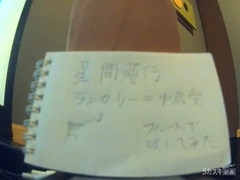 星間飛行
ランカ・リー＝中島愛
フルートで
吹いてみた
うたスキ動画